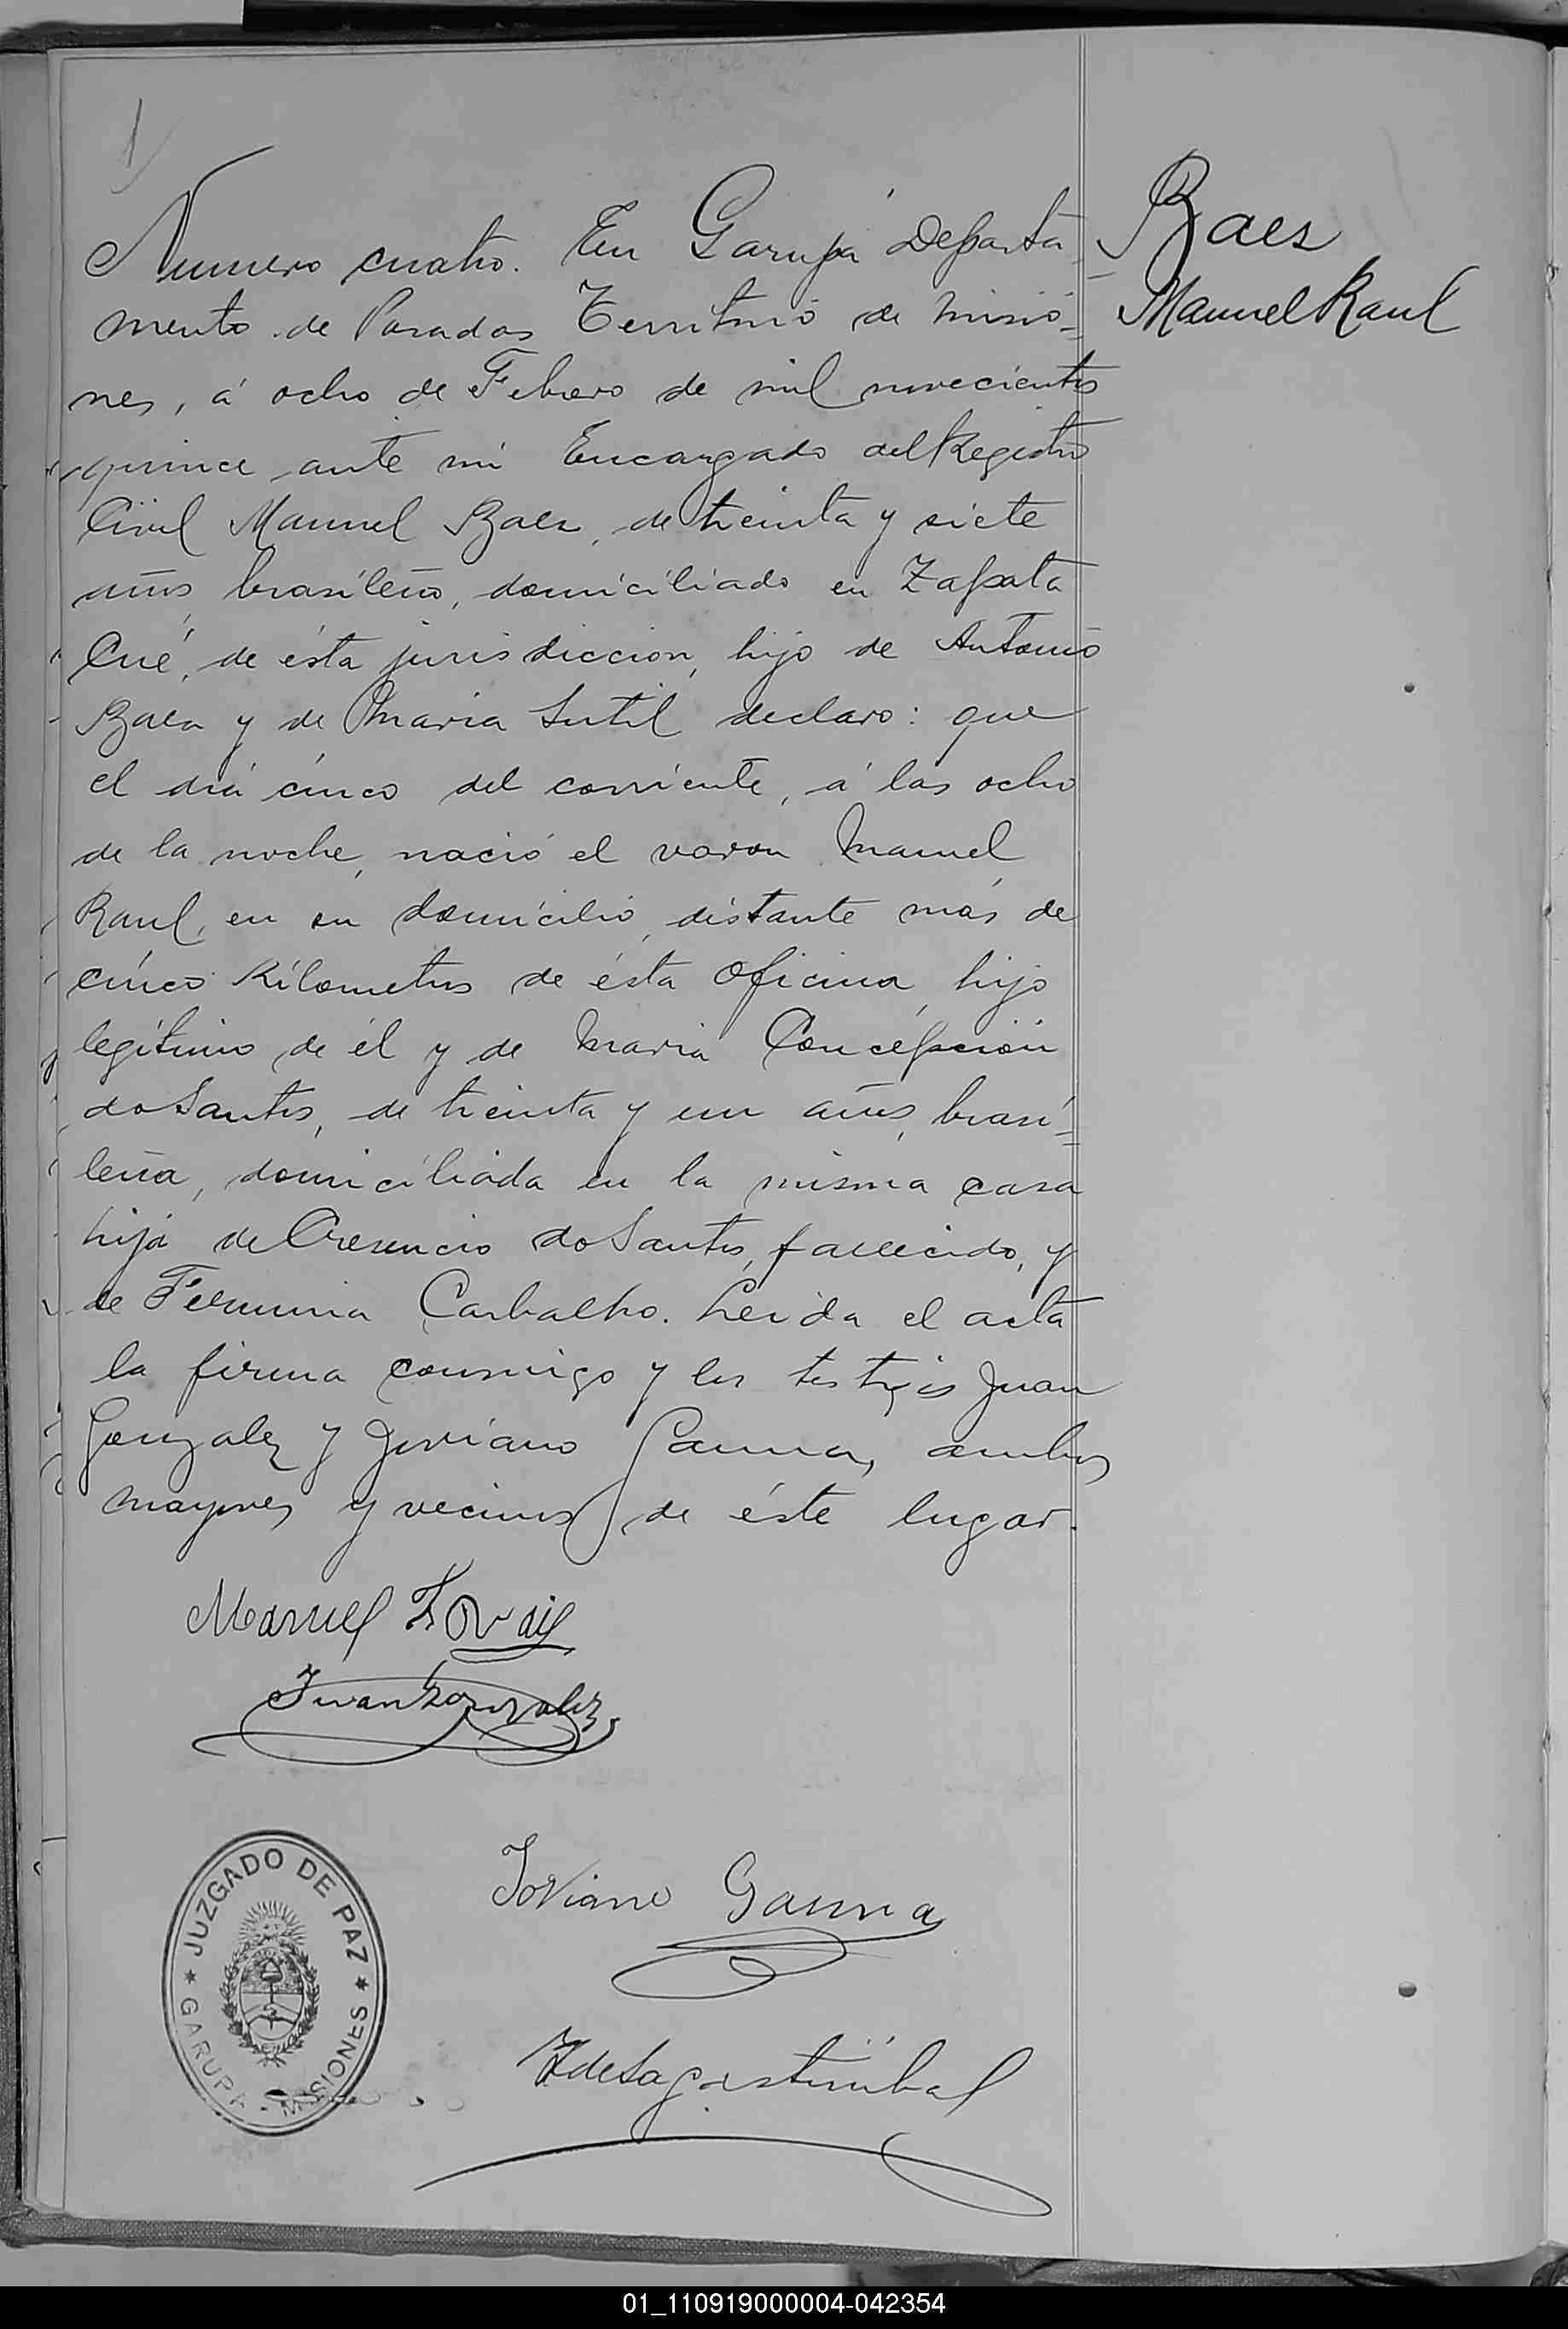 1
Numero cuatro. En Garupá Departa
mento de Posadas Territorio de Misio=
nes, á ocho de Febrero de mil novecientos
quince ante mi Encargado del Registro
Civil Manuel Baes, de treinta y siete
años, brasileño, domiciliado en Zapata
Cué, de ésta jurisdiccion, hijo de Antonio
Baes y de Maria Sutil declaro: que
el dia cinco del corriente, á las ocho
de la noche, nació el varon Manuel
Raul, en su domicilio, distante más de
cinco Kilometros de ésta Oficina, hijo
legítimo de él y de Maria Concepción
do Santos, de treinta y un años, brasi=
leña, domiciliada en la misma casa
hija de Cresencio do Santos, fallecido, y
de Fermina Carbalho. Leida el acta
la firma conmigo y los testigos Juan
Gonzalez y Joviano Gauna, ambos
mayores y vecinos de éste lugar.
Baes
Manuel Raul
Manuel
Juan Gonzalez
Joviano Gauna
JUZGADO DE PAZ
GARUPÁ - MISIONES
01_110919000004-042354